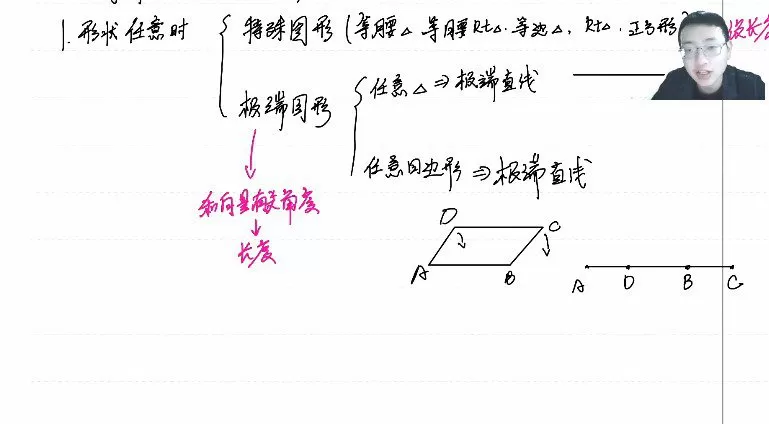 1. 形状任意时
特殊图形(等腰△ 等腰Rt△. 等边△, Rt△. 正方形
极端图形
任意△ ⇒ 极端直线
任意四边形 ⇒ 极端直线
和向量有关角度
↓
长度
D C
A B
A D B C